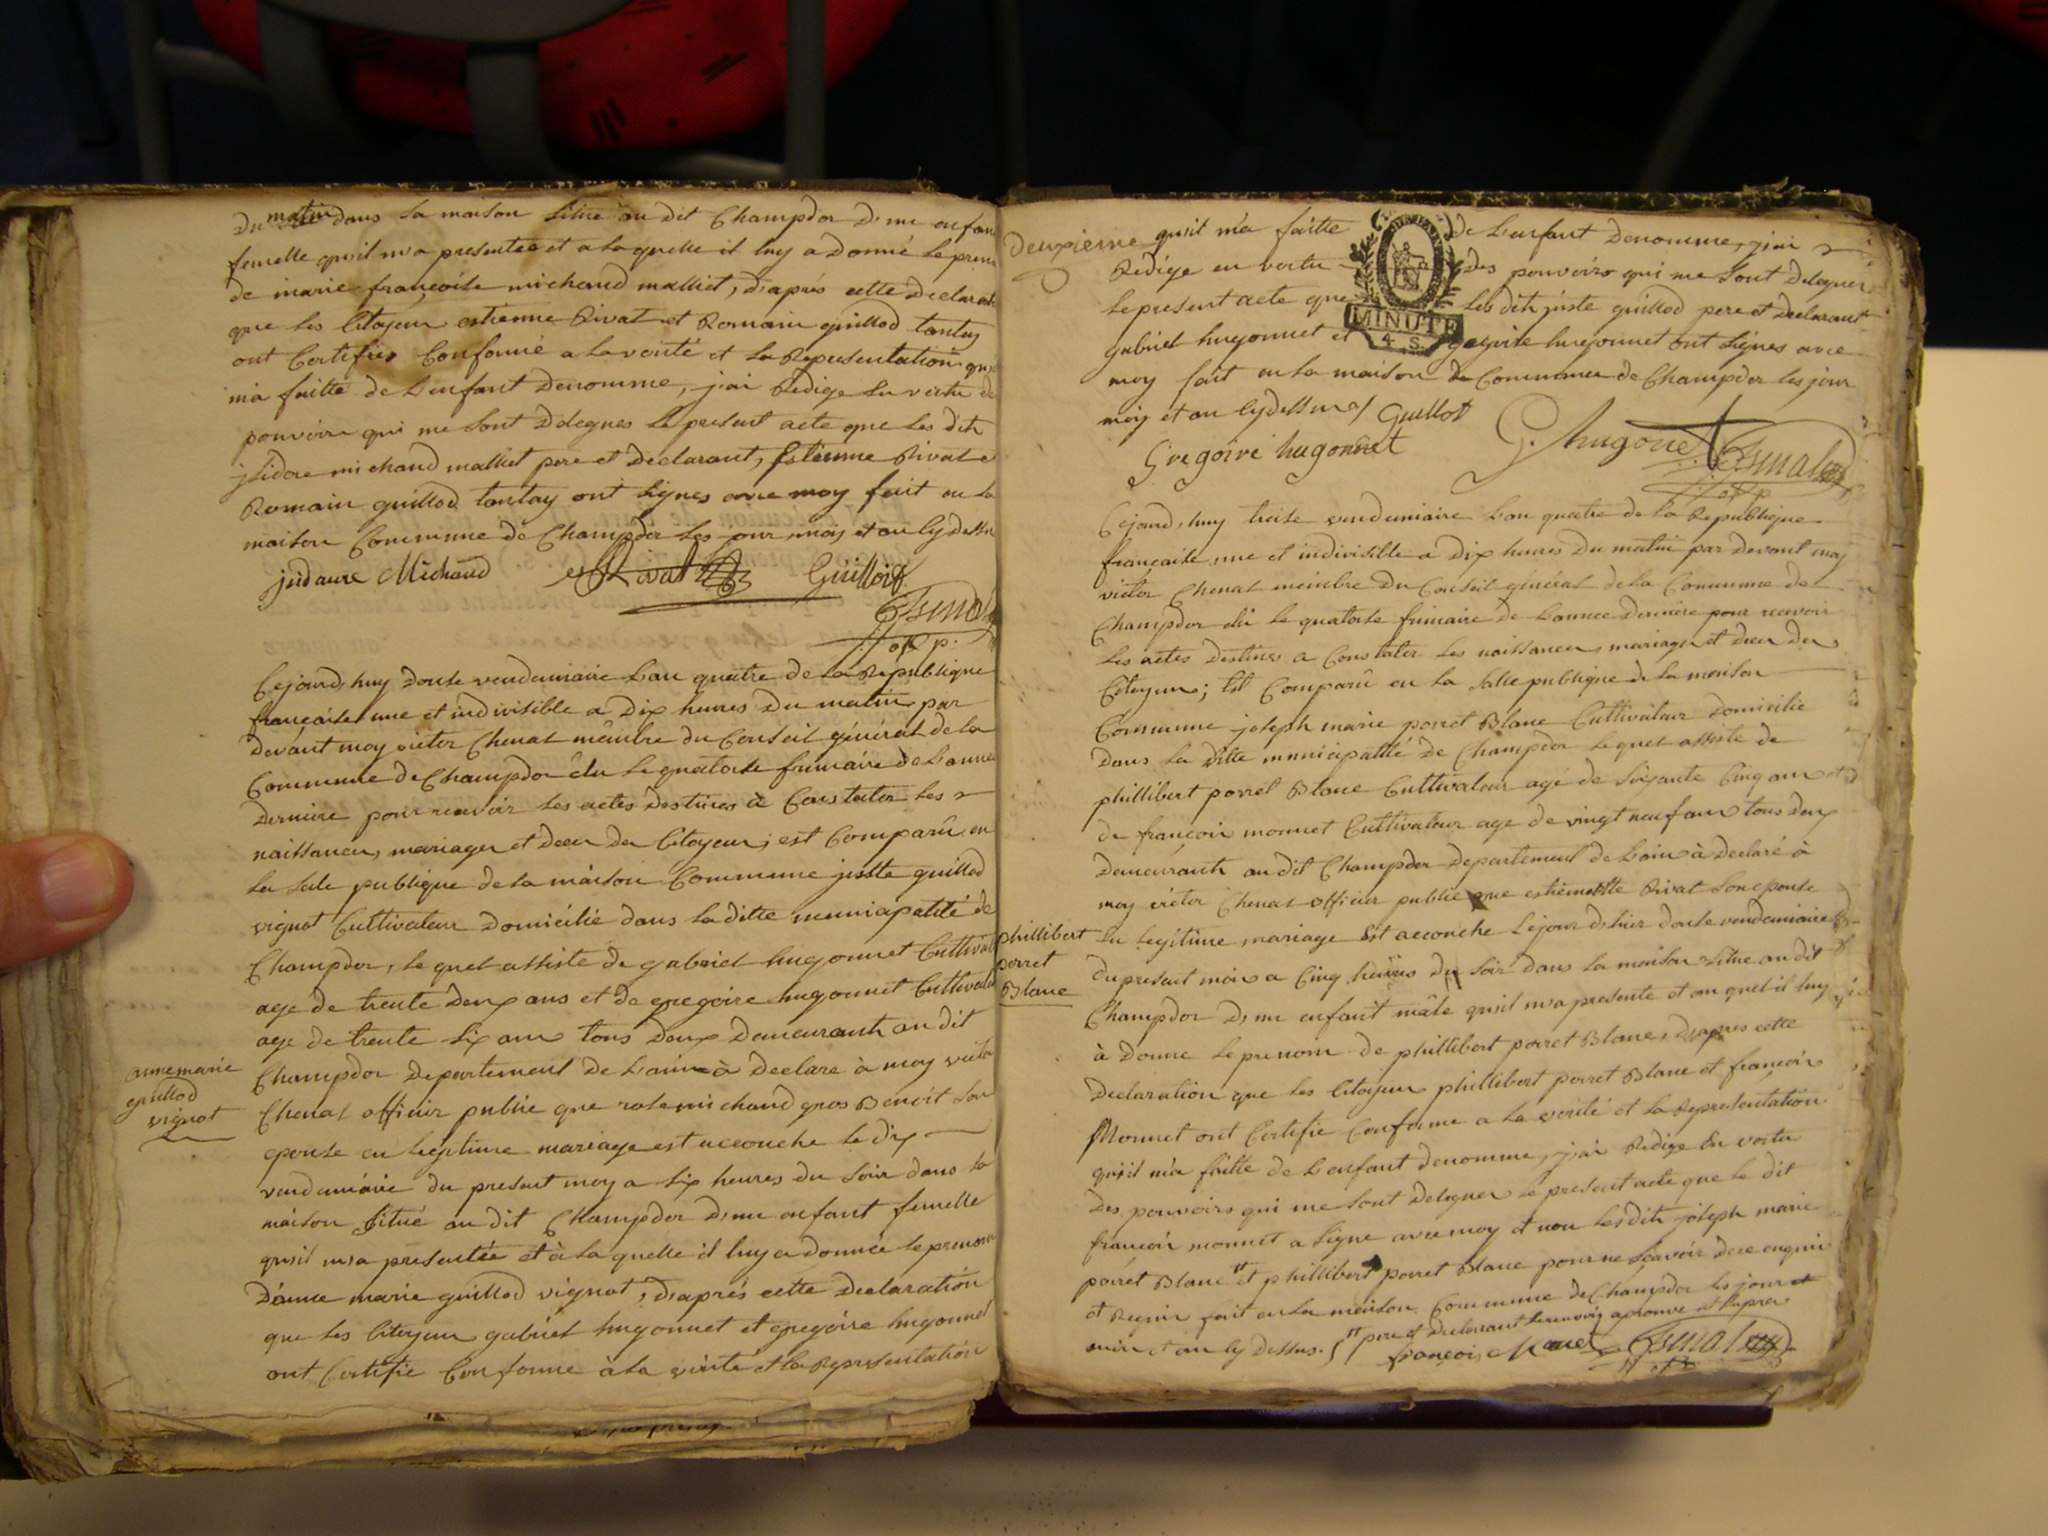 du matin dans la maison située au dit Champdor d'une enfan
femelle qu'il m'a presentée et a la quelle il luy a donné le pren
de marie françoise michaud malliet, d'aprés cette declarat
que les Citoyens estienne Rivat et Romain guillod tantay
ont Certifies Conforme a la verité et la Representation qu'il
m'a faitte de L'enfant denomme, j'ai Redige en vertu de
pouvoirs qui me sont delegues le present acte que les dits
jsidore michaud malliet pere et declarant, Estienne Rivat e
Romain guillod tantay ont signes avec moy fait en la
maison Commune de Champdor les jour mois et an cy dessu
Michaud Rivat Guillot
Cejourd'huy douse vendemiaire L'an quatre de la Republique
françaises une et indivisible a dix heures du matin par
devant moy victor Chenat membre du Conseil général de la
Commune de Champdor élu le quatorse frimaire de L'anne
derniere pour recevoir les actes destines à Constater les
naissances, mariages et deces des Citoyens; est Comparû en
la sale publique de la maison Commune juste guillod
vignot Cultivateur domicilié dans la ditte municipalité de
Champdor, le quel assiste de gabriel hugonnet Cultivat
age de trente deux ans et de gregoire hugonnet Cultivat
age de trente six ans tous deux demeurants au dit
Champdor departement de L'ain à declare à moy victor
anne marie
guillod
vignot
Chenat officier public que rose michaud gros Benoit son
epouse en legitime mariage est accouche le dix
vendemiaire du present moy a six heures du soir dans sa
maison situé au dit Champdor d'une enfant femelle
qu'il m'a presentée et à la quelle il luy a donnée le prenom
d'anne marie guillod vignot, d'aprés cette declaration
que les Citoyens gabriel hugonnet et gregoire hugonnet
ont Certifie Conforme à la vérité et la Representation
Deuxieme
qu'il m'a faitte de L'enfant denomme, j'ai
Redige en vertu des pouvoirs qui me sont delegues
MINUTE
4 S.
le present acte que les dits juste guillod pere et declarant
gabriel hugonnet et gregoire hugonnet ont signes avec
moy fait en la maison de Commune de Champdor les jour
mois et an cy dessus Guillot
Gregoire hugonnet G. hugonet
Cejourd'huy treise vendemiaire L'an quatre de la Republique
françaises une et indivisible a dix heures du matin par devant moy
victor Chenat membre du Conseil général de la Commune de
Champdor élu le quatorse frimaire de L'annee derniere pour recevoir
les actes destines a Constater les naissances, mariages et deces des
Citoyens; Est Comparû en la salle publique de la maison
Commune joseph marie perret Blanc Cultivateur domicilie
dans la ditte municipalité de Champdor le quel assiste de
phillibert perret Blanc Cultivateur agé de soixante Cinq ans et
de françois monnet Cultivateur age de vingt neuf ans tous deux
demeurants au dit Champdor departement de L'ain à declaré à
moy victor Chenat officier public que estiennette Rivat son epouse
phillibert
perret
Blanc
en legitime mariage est accouche le jour d'hier douse vendemiaire
du present mois a Cinq heures du soir dans la maison située au dit
Champdor d'une enfant mâle qu'il m'a presente et au quel il luy
à donne le prenom de phillibert perret Blanc, d'apres cette
declaration que les Citoyens phillibert perret Blanc et françois
Monnet ont Certifie Conforme a la verité et la Representation
qu'il m'a faitte de L'enfant denomme, j'ai Redige En vertu
des pouvoirs qui me sont delegues le present acte que le dit
françois monnet a signe avec moy et non les dits joseph marie
perret Blanc et phillibert perret Blanc pour ne sçavoir de ce enquis
et Requis fait en la maison Commune de Champdor les jour et
mois et an cy dessus. pere et declarant
françois Monet